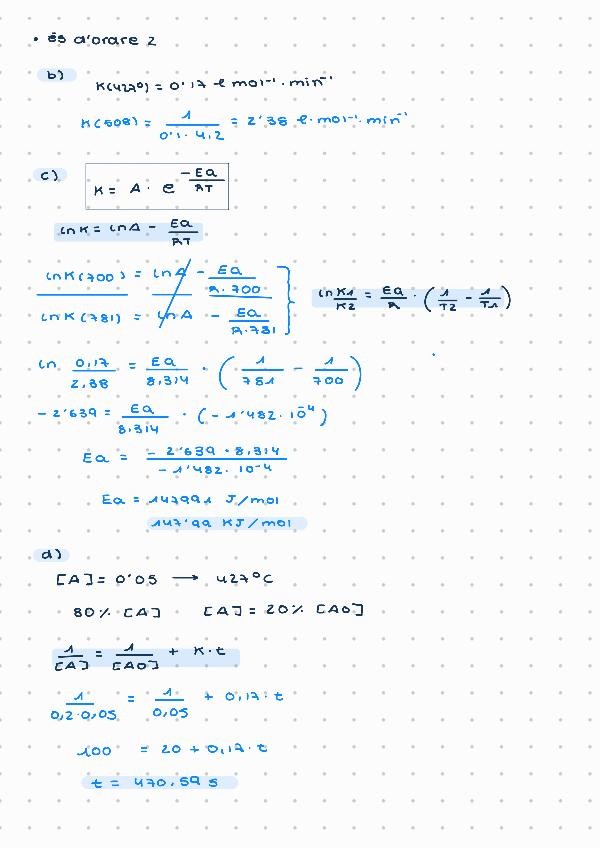 • és d'ordre 2
b)
K(427º) = 0'17 l mol⁻¹ · min⁻¹
K(508) = 1/(0'1 · 4,2) = 2'38 l · mol⁻¹ · min⁻¹
c) K = A · e^(-Ea/RT)
ln K = ln A - Ea/RT
ln K(700) = ln A - Ea/(R · 700)
ln K(781) = ln A - Ea/(R · 781)
ln K1/K2 = Ea/R · (1/T2 - 1/T1)
ln 0,17/2,38 = Ea/8,314 · (1/781 - 1/700)
-2'639 = Ea/8,314 · (-1'482 · 10⁻⁴)
Ea = (-2'639 · 8,314)/(-1'482 · 10⁻⁴)
Ea = 147991 J/mol
147'99 KJ/mol
d)
[A] = 0'05 → 427ºC
80% [A] [A] = 20% [A0]
1/[A] = 1/[A0] + K · t
1/(0,2 · 0,05) = 1/0,05 + 0,17 · t
100 = 20 + 0,17 · t
t = 470,59 s